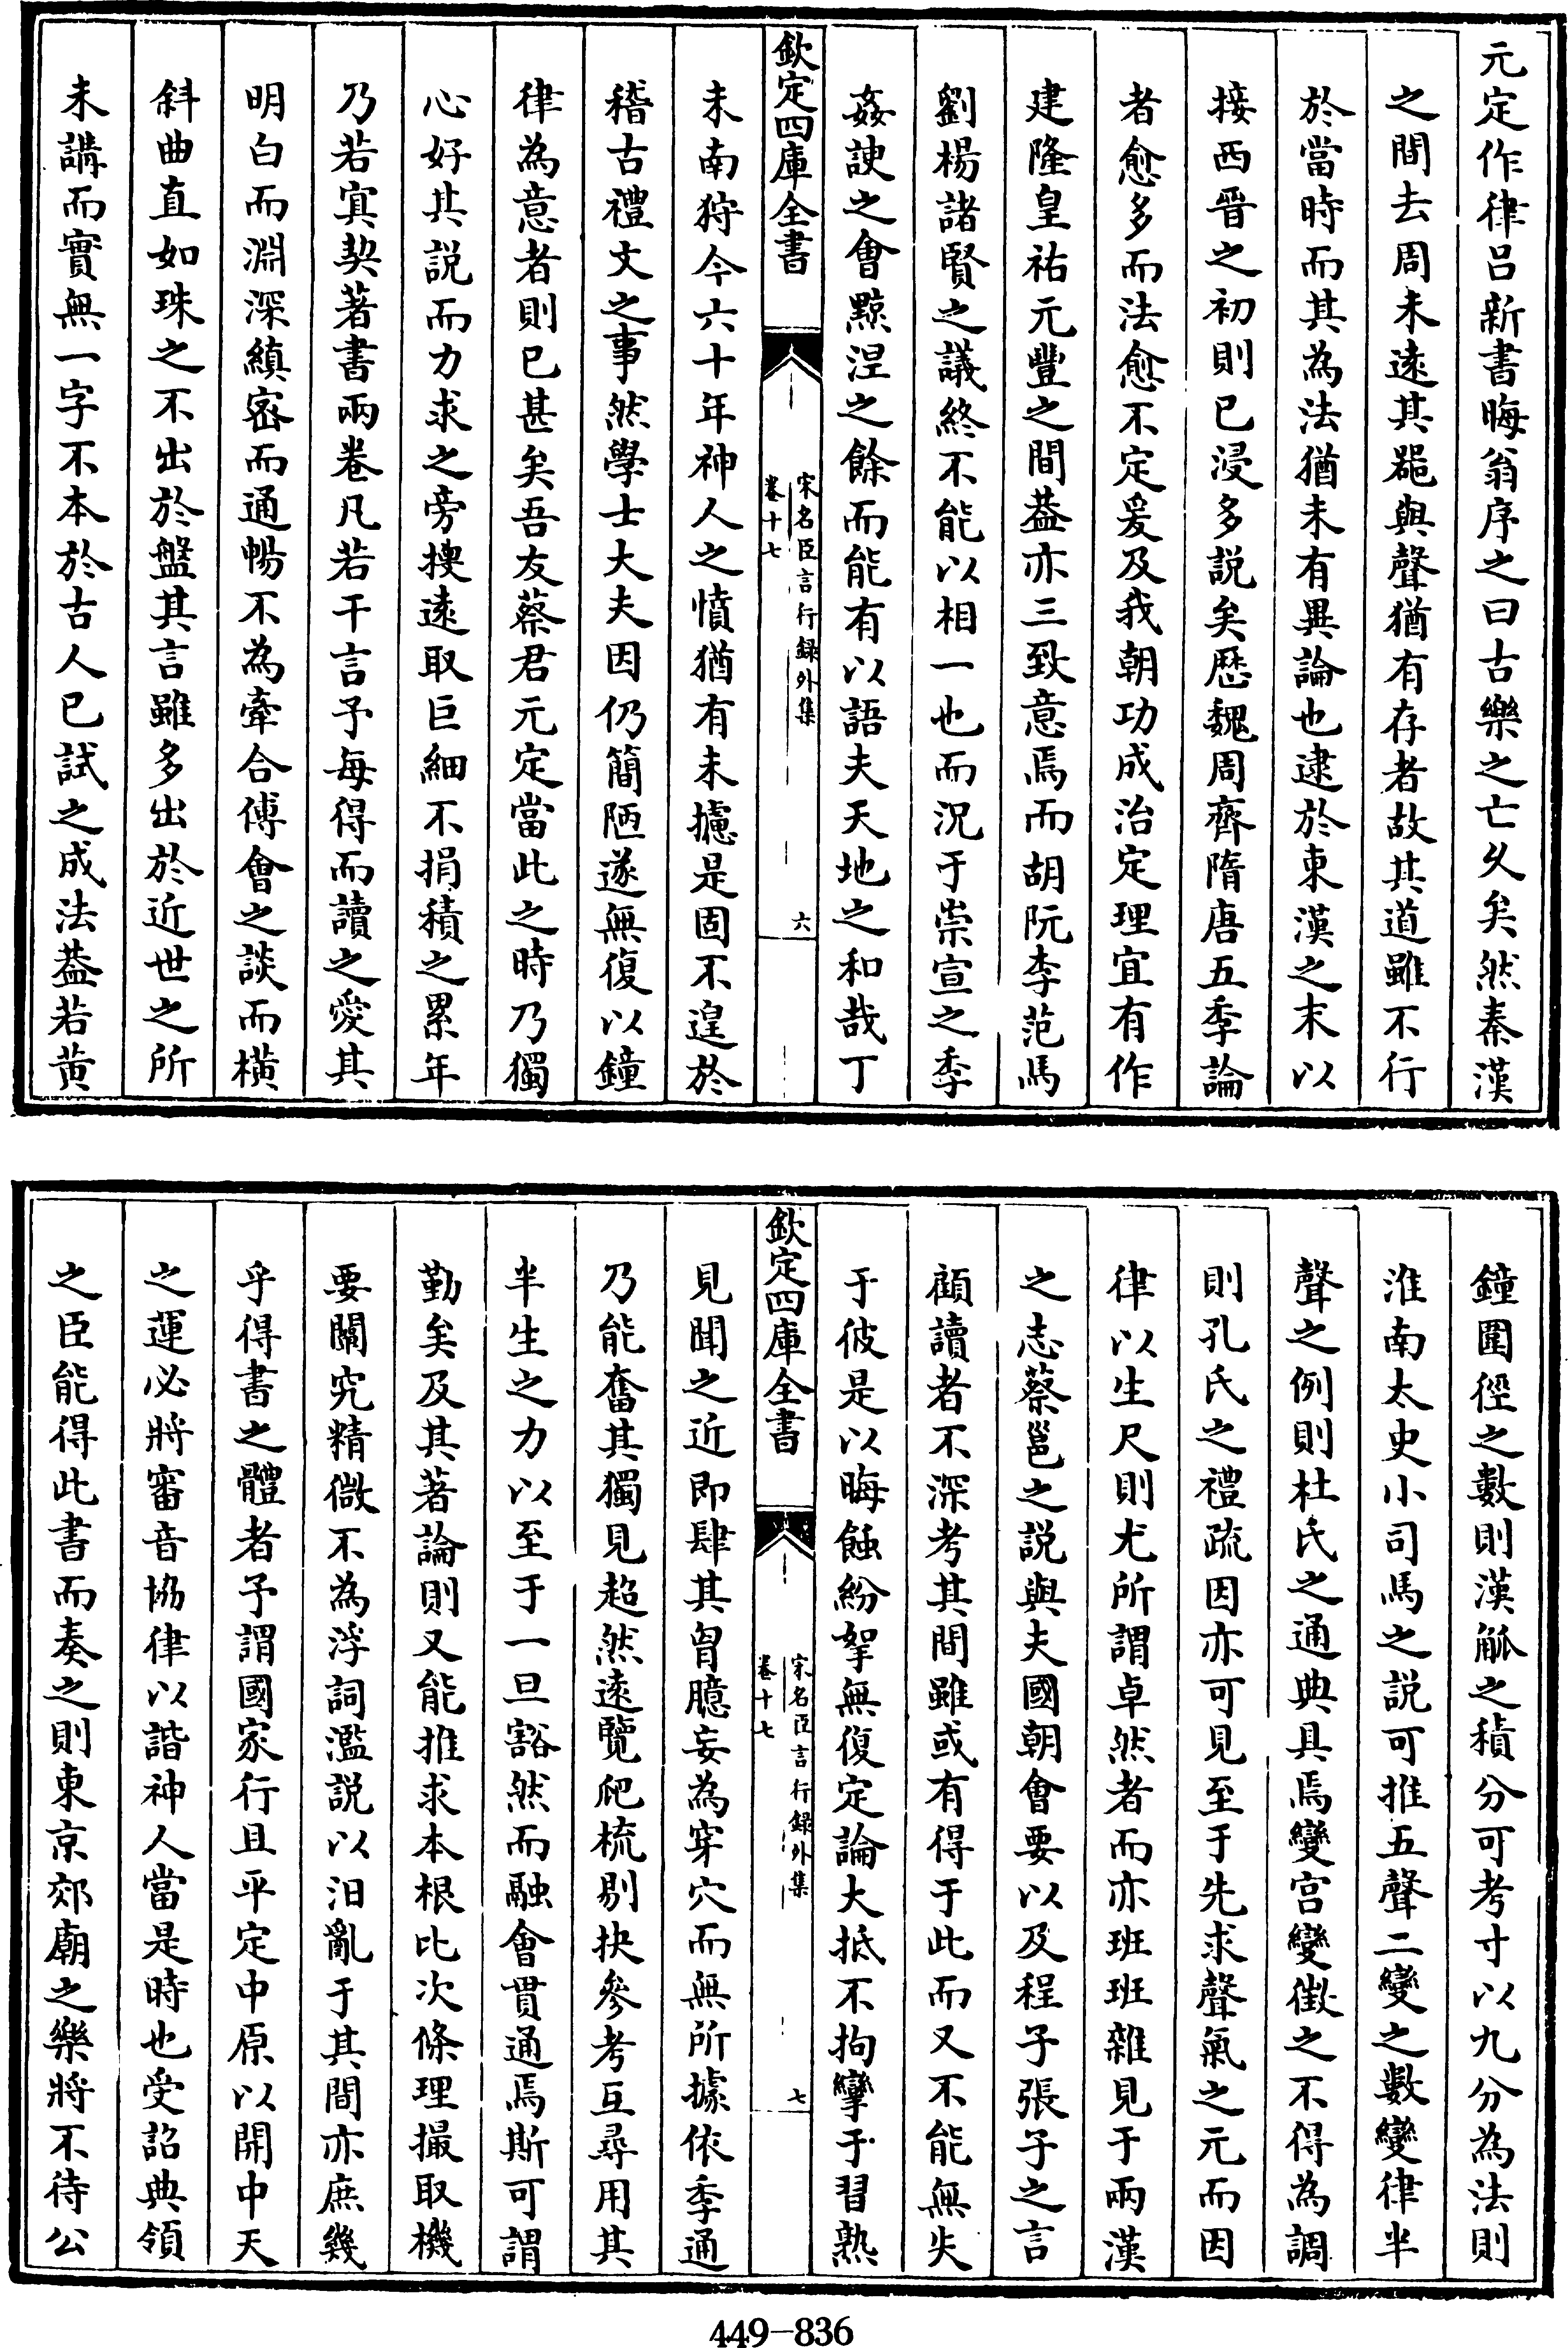 元定作律呂新書晦翁序之曰古樂之亡乆矣然秦漢
之間去周未逺其噐與聲猶有存者故其道雖不行
於當時而其為法猶未有異論也逮於東漢之末以
接西晋之初則已浸多説矣歴魏周齊隋唐五季論
者愈多而法愈不定爰及我朝功成治定理宜有作
建隆皇祐元豐之間葢亦三致意焉而胡阮李范馬
劉楊諸賢之議終不能以相一也而況于崇宣之季
姦諛之會黥涅之餘而能有以語夫天地之和哉丁
欽定四庫全書
宋名臣言行録外集
卷十七
六
未南狩今六十年神人之憤猶有未攄是固不遑於
稽古禮文之事然學士大夫因仍簡陋遂無復以鐘
律為意者則已甚矣吾友蔡君元定當此之時乃獨
心好其説而力求之旁搜逺取巨細不捐積之累年
乃若㝠契著書兩卷凡若干言予每得而讀之愛其
明白而淵深縝宻而通暢不為牽合傅會之談而横
斜曲直如珠之不出於盤其言雖多出於近世之所
未講而實無一字不本於古人已試之成法葢若黄
鐘圍徑之數則漢觚之積分可考寸以九分為法則
淮南太史小司馬之説可推五聲二變之數變律半
聲之例則杜氏之通典具焉變宫變徵之不得為調
則孔氏之禮疏因亦可見至于先求聲氣之元而因
律以生尺則尤所謂卓然者而亦班班雜見于兩漢
之志蔡邕之説與夫國朝會要以及程子張子之言
顧讀者不深考其間雖或有得于此而又不能無失
于彼是以晦蝕紛挐無復定論大抵不拘攣于習熟
欽定四庫全書
宋名臣言行録外集
卷十七
七
見聞之近即肆其胷臆妄為穿穴而無所據依季通
乃能奮其獨見超然逺覽爬梳剔抉參考互尋用其
半生之力以至于一旦豁然而融會貫通焉斯可謂
勤矣及其著論則又能推求本根比次條理撮取機
要闡究精微不為浮詞濫説以汩亂于其間亦庶幾
乎得書之體者予謂國家行且平定中原以開中天
之運必將審音協律以諧神人當是時也受詔典領
之臣能得此書而奏之則東京郊廟之樂將不待公
449-836